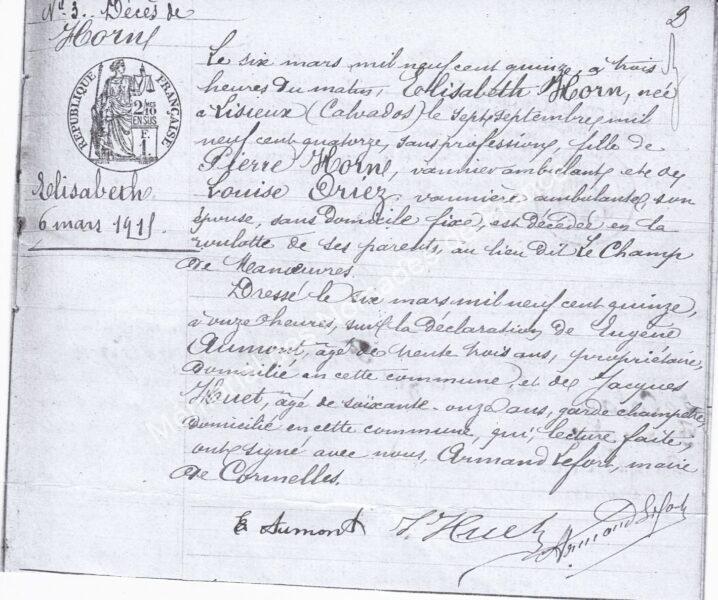 N° 3. Décès de
Horn
2
RÉPUBLIQUE FRANÇAISE
2/10 EN SUS
F.
1
Elisabeth
6 mars 1915.
Le six mars mil neuf cent quinze, à trois
heures du matin, Elisabeth Horn, née
à Lisieux (Calvados) le sept septembre mil
neuf cent quatorze, sans profession, fille de
Pierre Horn, vannier ambulant et de
Louise Driez, vannière ambulante, son
épouse, sans domicile fixe, est décédée en la
roulotte de ses parents, au lieu dit Le Champ
de Manœuvres.
Dressé le six mars mil neuf cent quinze,
à onze heures, sur la déclaration de Eugène
Aumont, âgé de trente trois ans, propriétaire,
domicilié en cette commune, et de Jacques
Huet, âgé de soixante-onze ans, garde champêtre
domicilié en cette commune, qui, lecture faite,
ont signé avec nous, Armand Lefort, maire
de Cormelles.
E Aumont J. Huet Armand Lefort